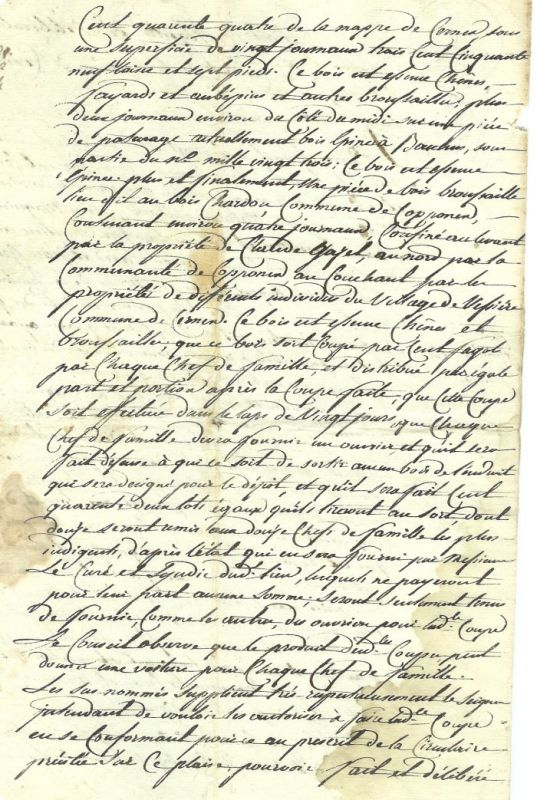 Cent quarente quatre de la mappe de Cernex sous
une superficie de vingt journaux trois Cent cinquante
neuf toises et sept pieds. Ce bois est essence Chênes
fayards et aubépins et autres broussailles; plus
deux journaux environ du Côté du midi sur une pièce
de paturage actuellement bois Epines à Bauchu, sous
partie du n.° mille vingt trois; Ce bois est essence
Epines plus et finalement, Une pièce de bois broussaille
lieu dit au bois Chardon Commune de Copponex,
Contenant environ quatre journaux, Confiné au levant
par la propriété de Claude Gazel, au nord par la
Communauté de Copponex au Couchant par les
propriétés de différents individus du Village de
Commune de Cernex. Ce bois est essence Chênes et
broussailles, que ce bois soit Coupé par Cent fagot
par Chaque Chef de famille, et distribué par égale
part et portion après la Coupe faite, que cette Coupe
soit effectuée dans le laps de Vingt jours, que Chaque
Chef de famille devra fournir un ouvrier et qu'il sera
fait défense à qui ce soit de sortir aucun bois de l'endroit
qui sera designé pour le dépôt, et qu'il sera fait Cent
quarante deux lots égaux qu'ils tireront au sort dont
douze seront remis aux douze Chefs de famille les plus
indigents, d'après l'état qui en sera fourni par Messieurs
Le Curé et Syndic dud.t lieu, lesquels ne payeront
pour leur part aucune somme; seront seulement tenus
de fournir, Comme les autres, des ouvriers pour lad.te Coupe
Le Conseil observe que le produit de lad.te Coupe peut
donner une voiture pour Chaque Chef de famille.
Les sus nommés supplient très respectueusement le Seigneur
intendant de vouloir les autoriser à faire lad.te Coupe
en se Conformant au prescrit de la Circulaire
précitée. Sur Ce plaise pourvoir. fait et délibéré